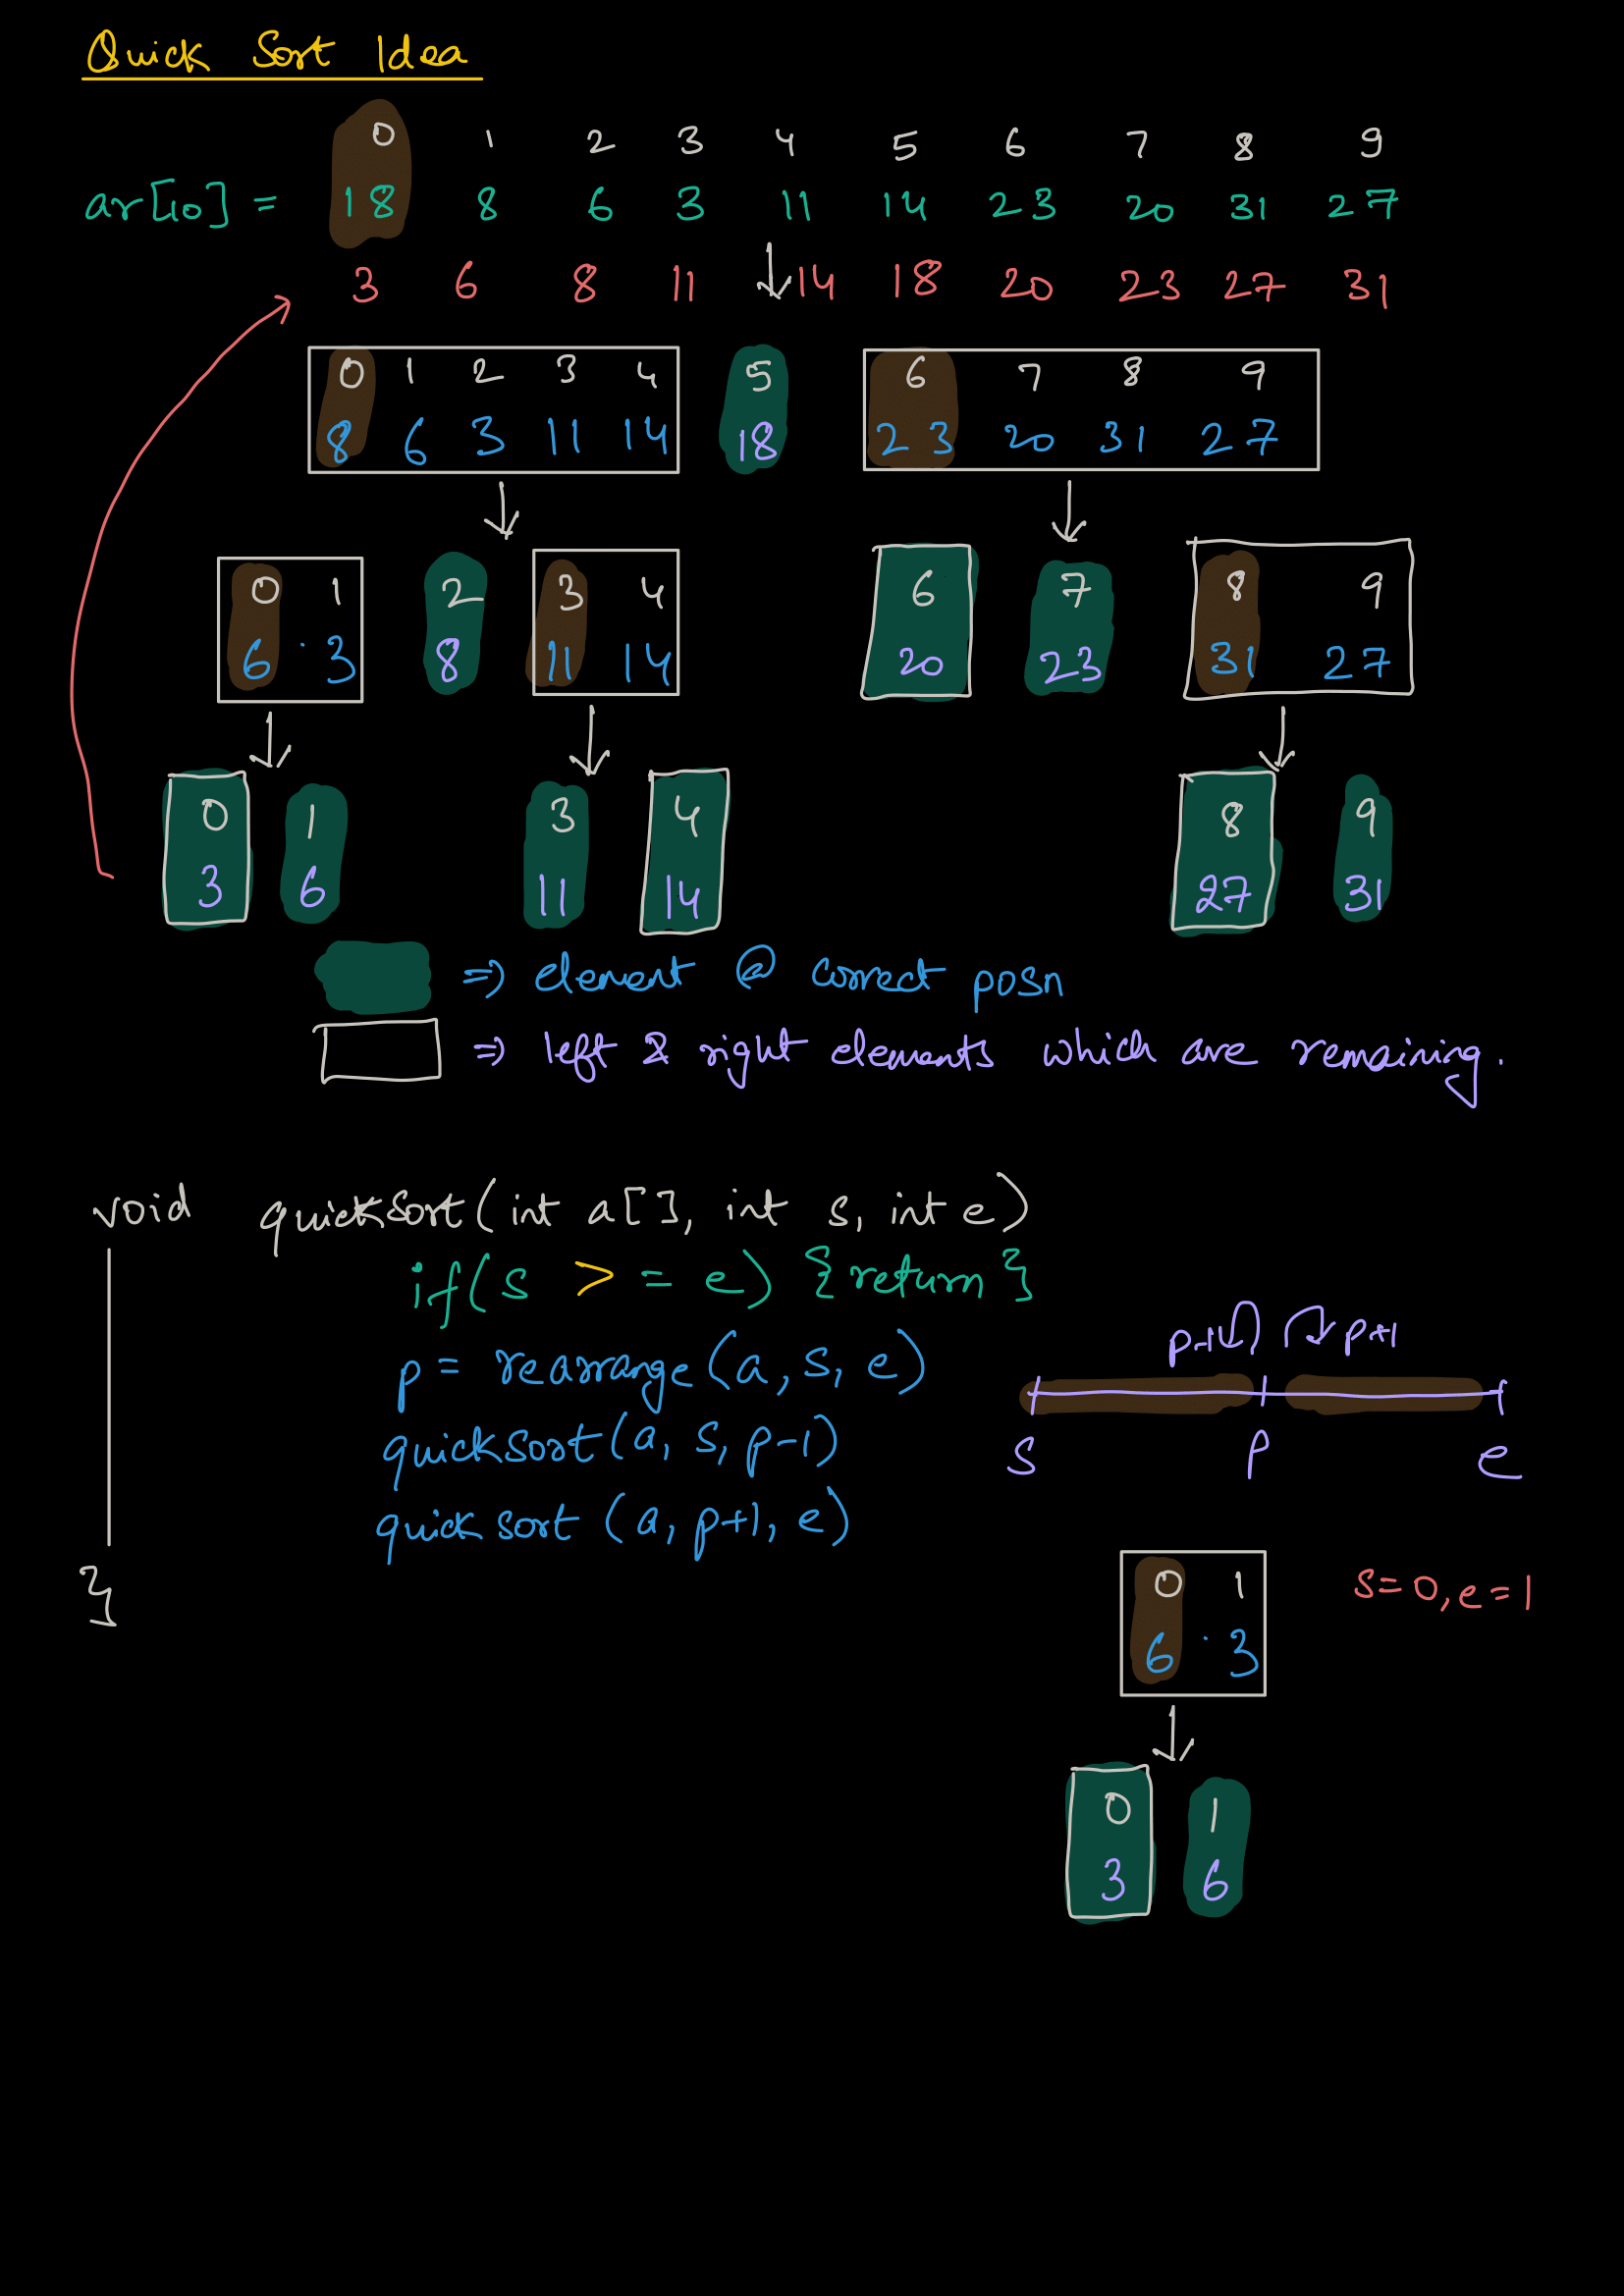 Quick Sort Idea
0 1 2 3 4 5 6 7 8 9
ar[10] = 18 8 6 3 11 14 23 20 31 27
3 6 8 11 14 18 20 23 27 31
0 1 2 3 4 5 6 7 8 9
8 6 3 11 14 18 23 20 31 27
0 1 2 3 4 6 7 8 9
6 3 8 11 14 20 23 31 27
0 1 3 4 8 9
3 6 11 14 27 31
=> element @ correct posn
=> left & right elements which are remaining.
void quicksort(int a[], int s, int e)
if(s >= e) {return}
p-1 p+1
p = rearrange(a, s, e)
quicksort(a, s, p-1)
s p e
quicksort (a, p+1, e)
}
0 1 s=0, e=1
6 3
0 1
3 6